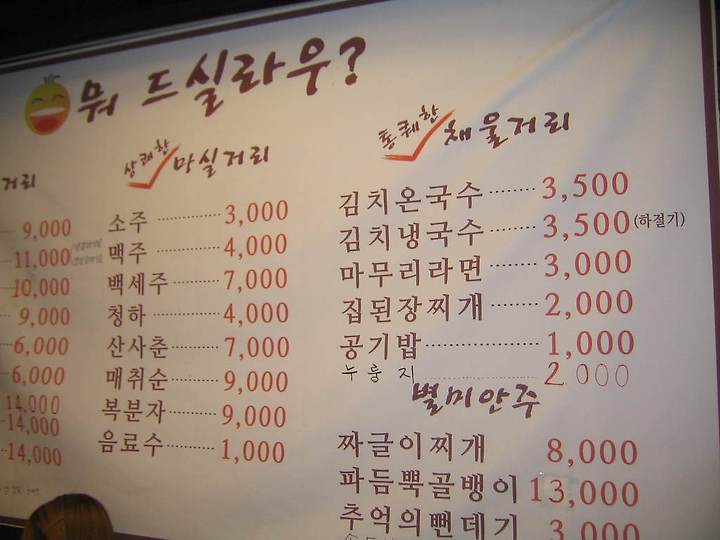 뭐 드실라우?
거리
9,000
11,000
10,000
9,000
6,000
6,000
14,000
14,000
14,000
상쾌한 마실거리
소주 3,000
맥주 4,000
백세주 7,000
청하 4,000
산사춘 7,000
매취순 9,000
복분자 9,000
음료수 1,000
통쾌한 채울거리
김치온국수 3,500
김치냉국수 3,500 (하절기)
마무리라면 3,000
집된장찌개 2,000
공기밥 1,000
누룽지 2000
별미안주
짜글이찌개 8,000
파듬뿍골뱅이 13,000
추억의뻔데기 3,000